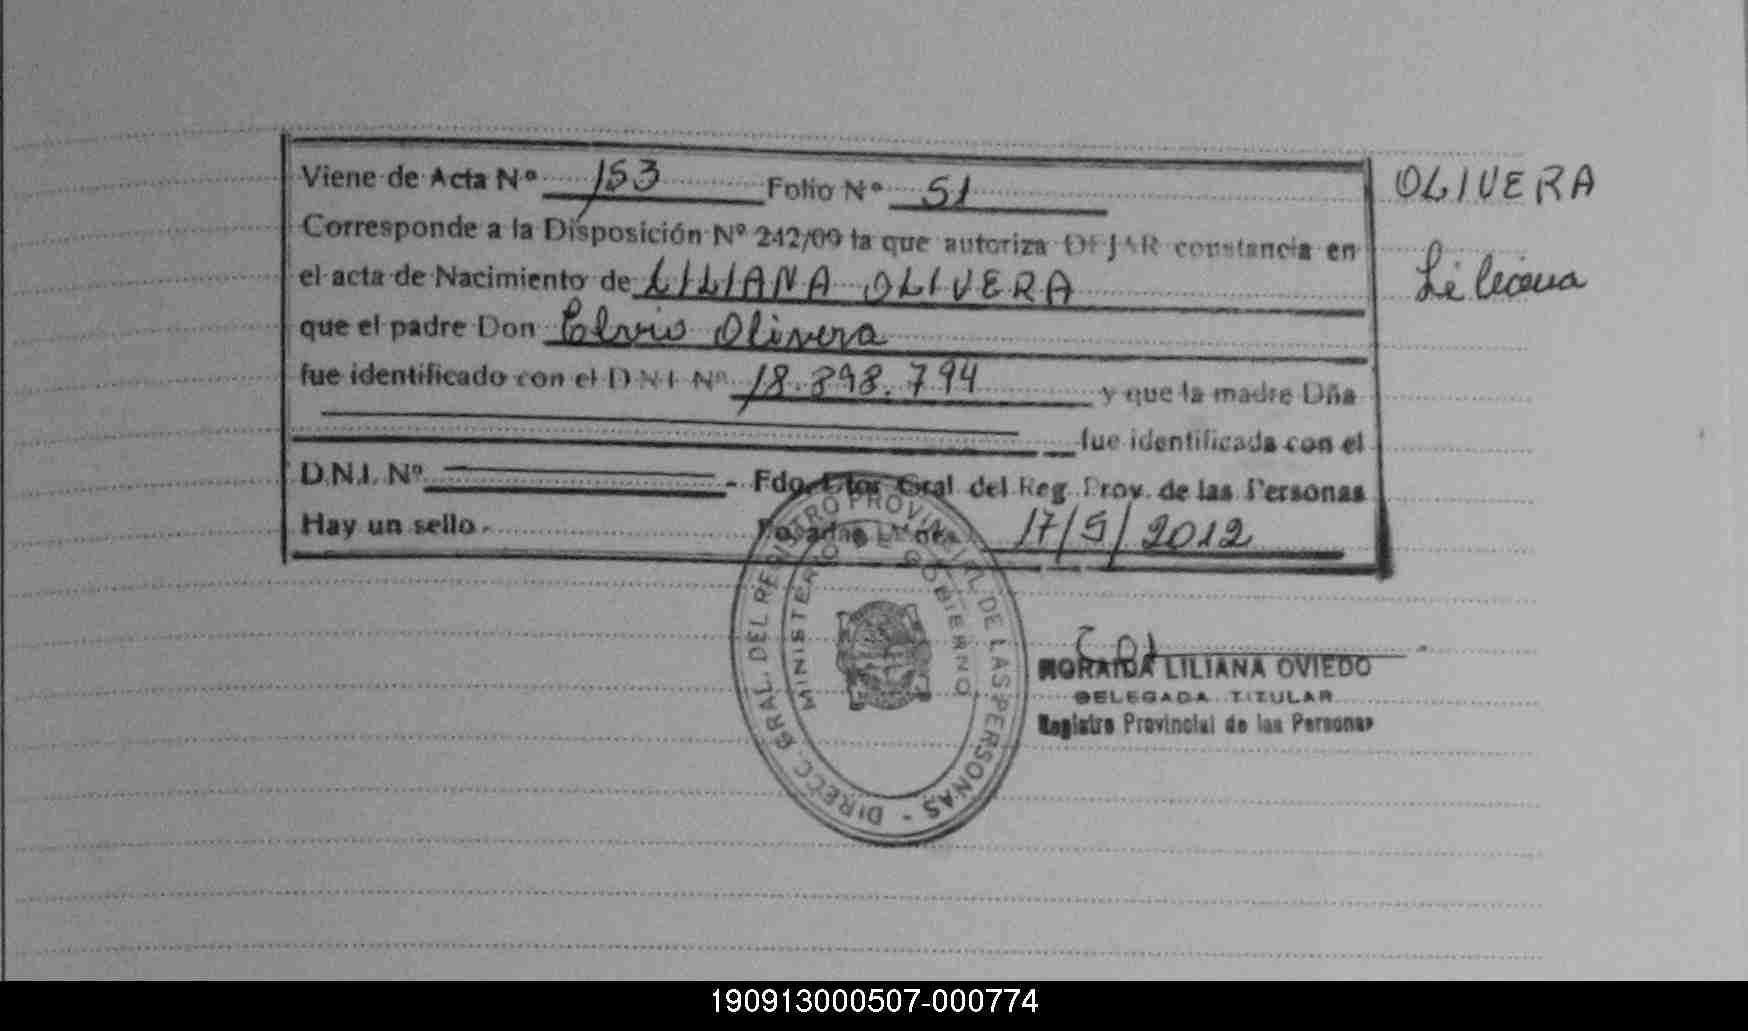 Viene de Acta Nº 153 Folio Nº 51
Corresponde a la Disposición Nº 242/09 la que autoriza DEJAR constancia en
el acta de Nacimiento de LILIANA OLIVERA
que el padre Don Elvio Olivera
fue identificado con el D.N.I. Nº 18.898.794 y que la madre Dña
fue identificada con el
D.N.I. Nº - Fdo. Dtor Gral del Reg. Prov. de las Personas
Hay un sello.- Posadas Mnes 17/5/2012
OLIVERA
Liliana
DIRECC. GRAL. DEL REGISTRO PROVINCIAL DE LAS PERSONAS -
MINISTERIO DE GOBIERNO
LILIANA OVIEDO
DELEGADA TITULAR
Registro Provincial de las Personas
190913000507-000774